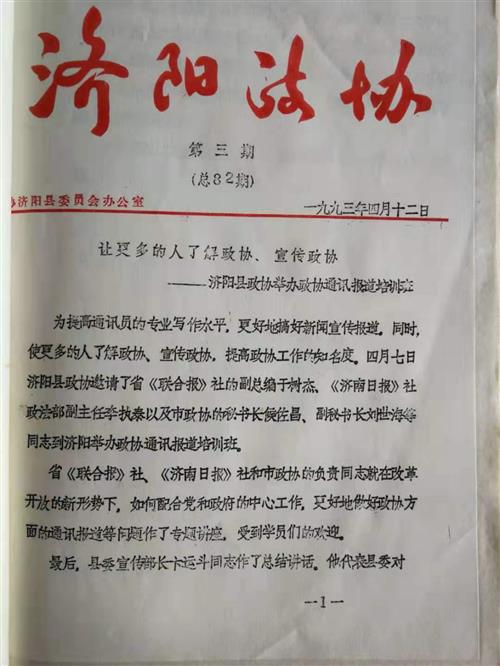 济阳政协
第三期
(总82期)
济阳县委员会办公室
一九九三年四月十二日
让更多的人了解政协、宣传政协
——济阳县政协举办政协通讯报道培训班
为提高通讯员的专业写作水平,更好地搞好新闻宣传报道。同时,
使更多的人了解政协、宣传政协,提高政协工作的知名度。四月七日
济阳县政协邀请了省《联合报》社的副总编于树杰、《济南日报》社
政法部副主任李执泰以及市政协的秘书长侯佐昌、副秘书长刘世海等
同志到济阳举办政协通讯报道培训班。
省《联合报》社、《济南日报》社和市政协的负责同志就在改革
开放的新形势下,如何配合党和政府的中心工作,更好地做好政协方
面的通讯报道等问题作了专题讲座,受到学员们的欢迎。
最后,县委宣传部长卡运斗同志作了总结讲话。他代表县委对
—1—